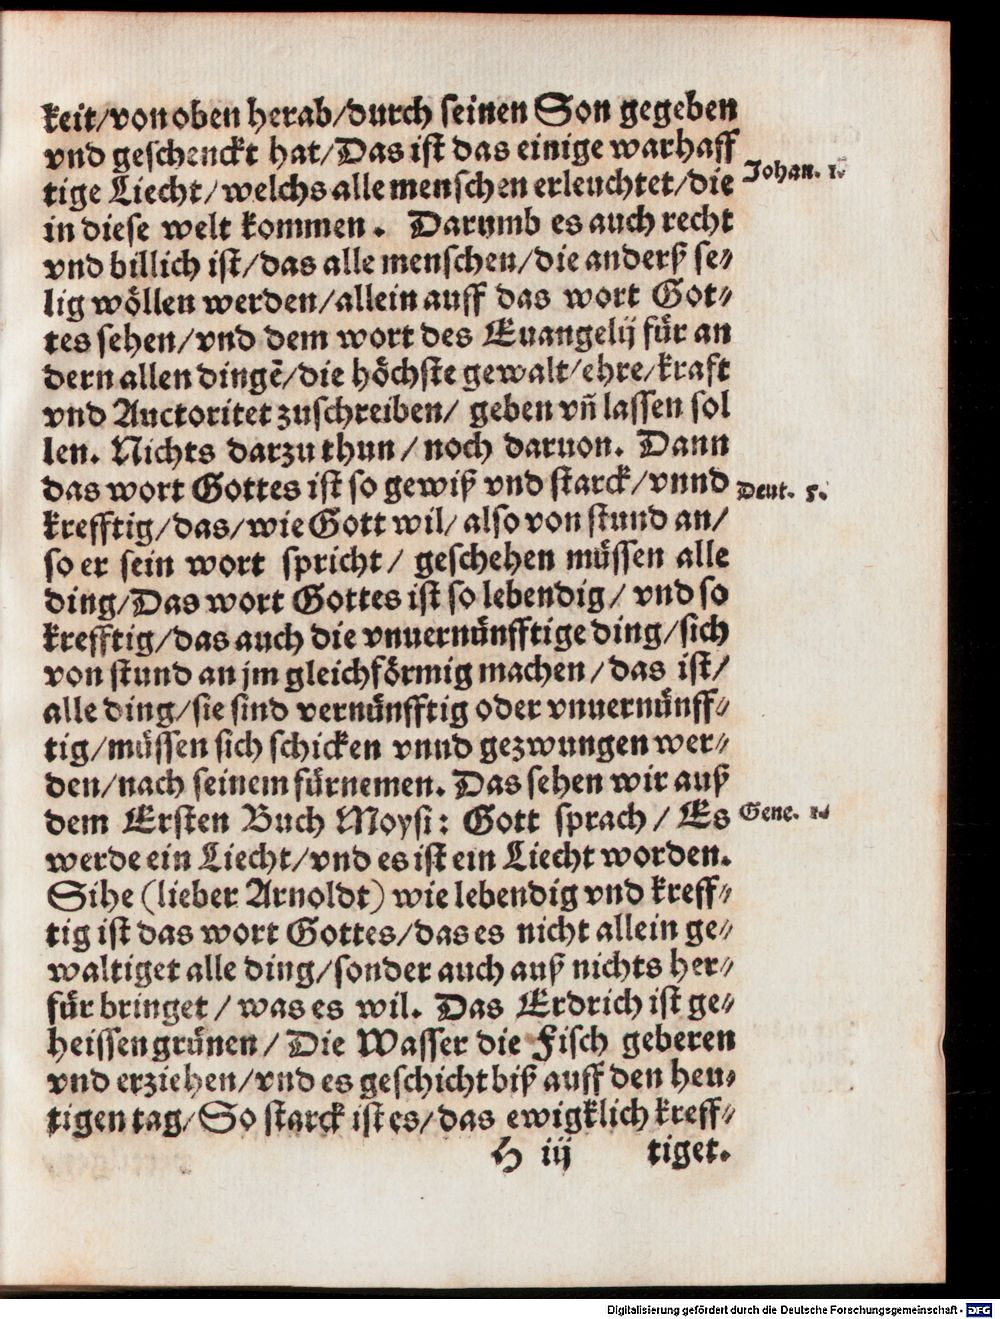 keit/von oben herab/durch seinen Son gegeben
vnd geschenckt hat/Das ist das einige warhaff
tige Liecht/welchs alle menschen erleuchtet/die
Johan. 1.
in diese welt kommen. Darumb es auch recht
vnd billich ist/das alle menschen/die anderß se⸗
lig wöllen werden/allein auff das wort Got⸗
tes sehen/vnd dem wort des Euangelij für an
dern allen dingẽ/die höchste gewalt/ehre/kraft
vnd Auctoritet zuschreiben/ geben vñ lassen sol
len. Nichts darzu thun/noch daruon. Dann
das wort Gottes ist so gewiß vnd starck/vnnd
Deut. 5.
krefftig/das/wie Gott wil/also von stund an/
so er sein wort spricht/ geschehen müssen alle
ding/Das wort Gottes ist so lebendig/ vnd so
krefftig/das auch die vnuernünfftige ding/sich
von stund an jm gleichförmig machen/das ist/
alle ding/sie sind vernünfftig oder vnuernünff⸗
tig/müssen sich schicken vnnd gezwungen wer⸗
den/nach seinem fürnemen. Das sehen wir auß
dem Ersten Buch Moysi: Gott sprach/ Es
Gene. 1.
werde ein Liecht/vnd es ist ein Liecht worden.
Sihe (lieber Arnoldt) wie lebendig vnd kreff⸗
tig ist das wort Gottes/das es nicht allein ge⸗
waltiget alle ding/sonder auch auß nichts her⸗
für bringet/was es wil. Das Erdrich ist ge⸗
heissen grünen/Die Wasser die Fisch geberen
vnd erziehen/vnd es geschicht biß auff den heu⸗
tigen tag/So starck ist es/das ewigklich kreff⸗
H iij tiget.
Digitalisierung gefördert durch die Deutsche Forschungsgemeinschaft - DFG